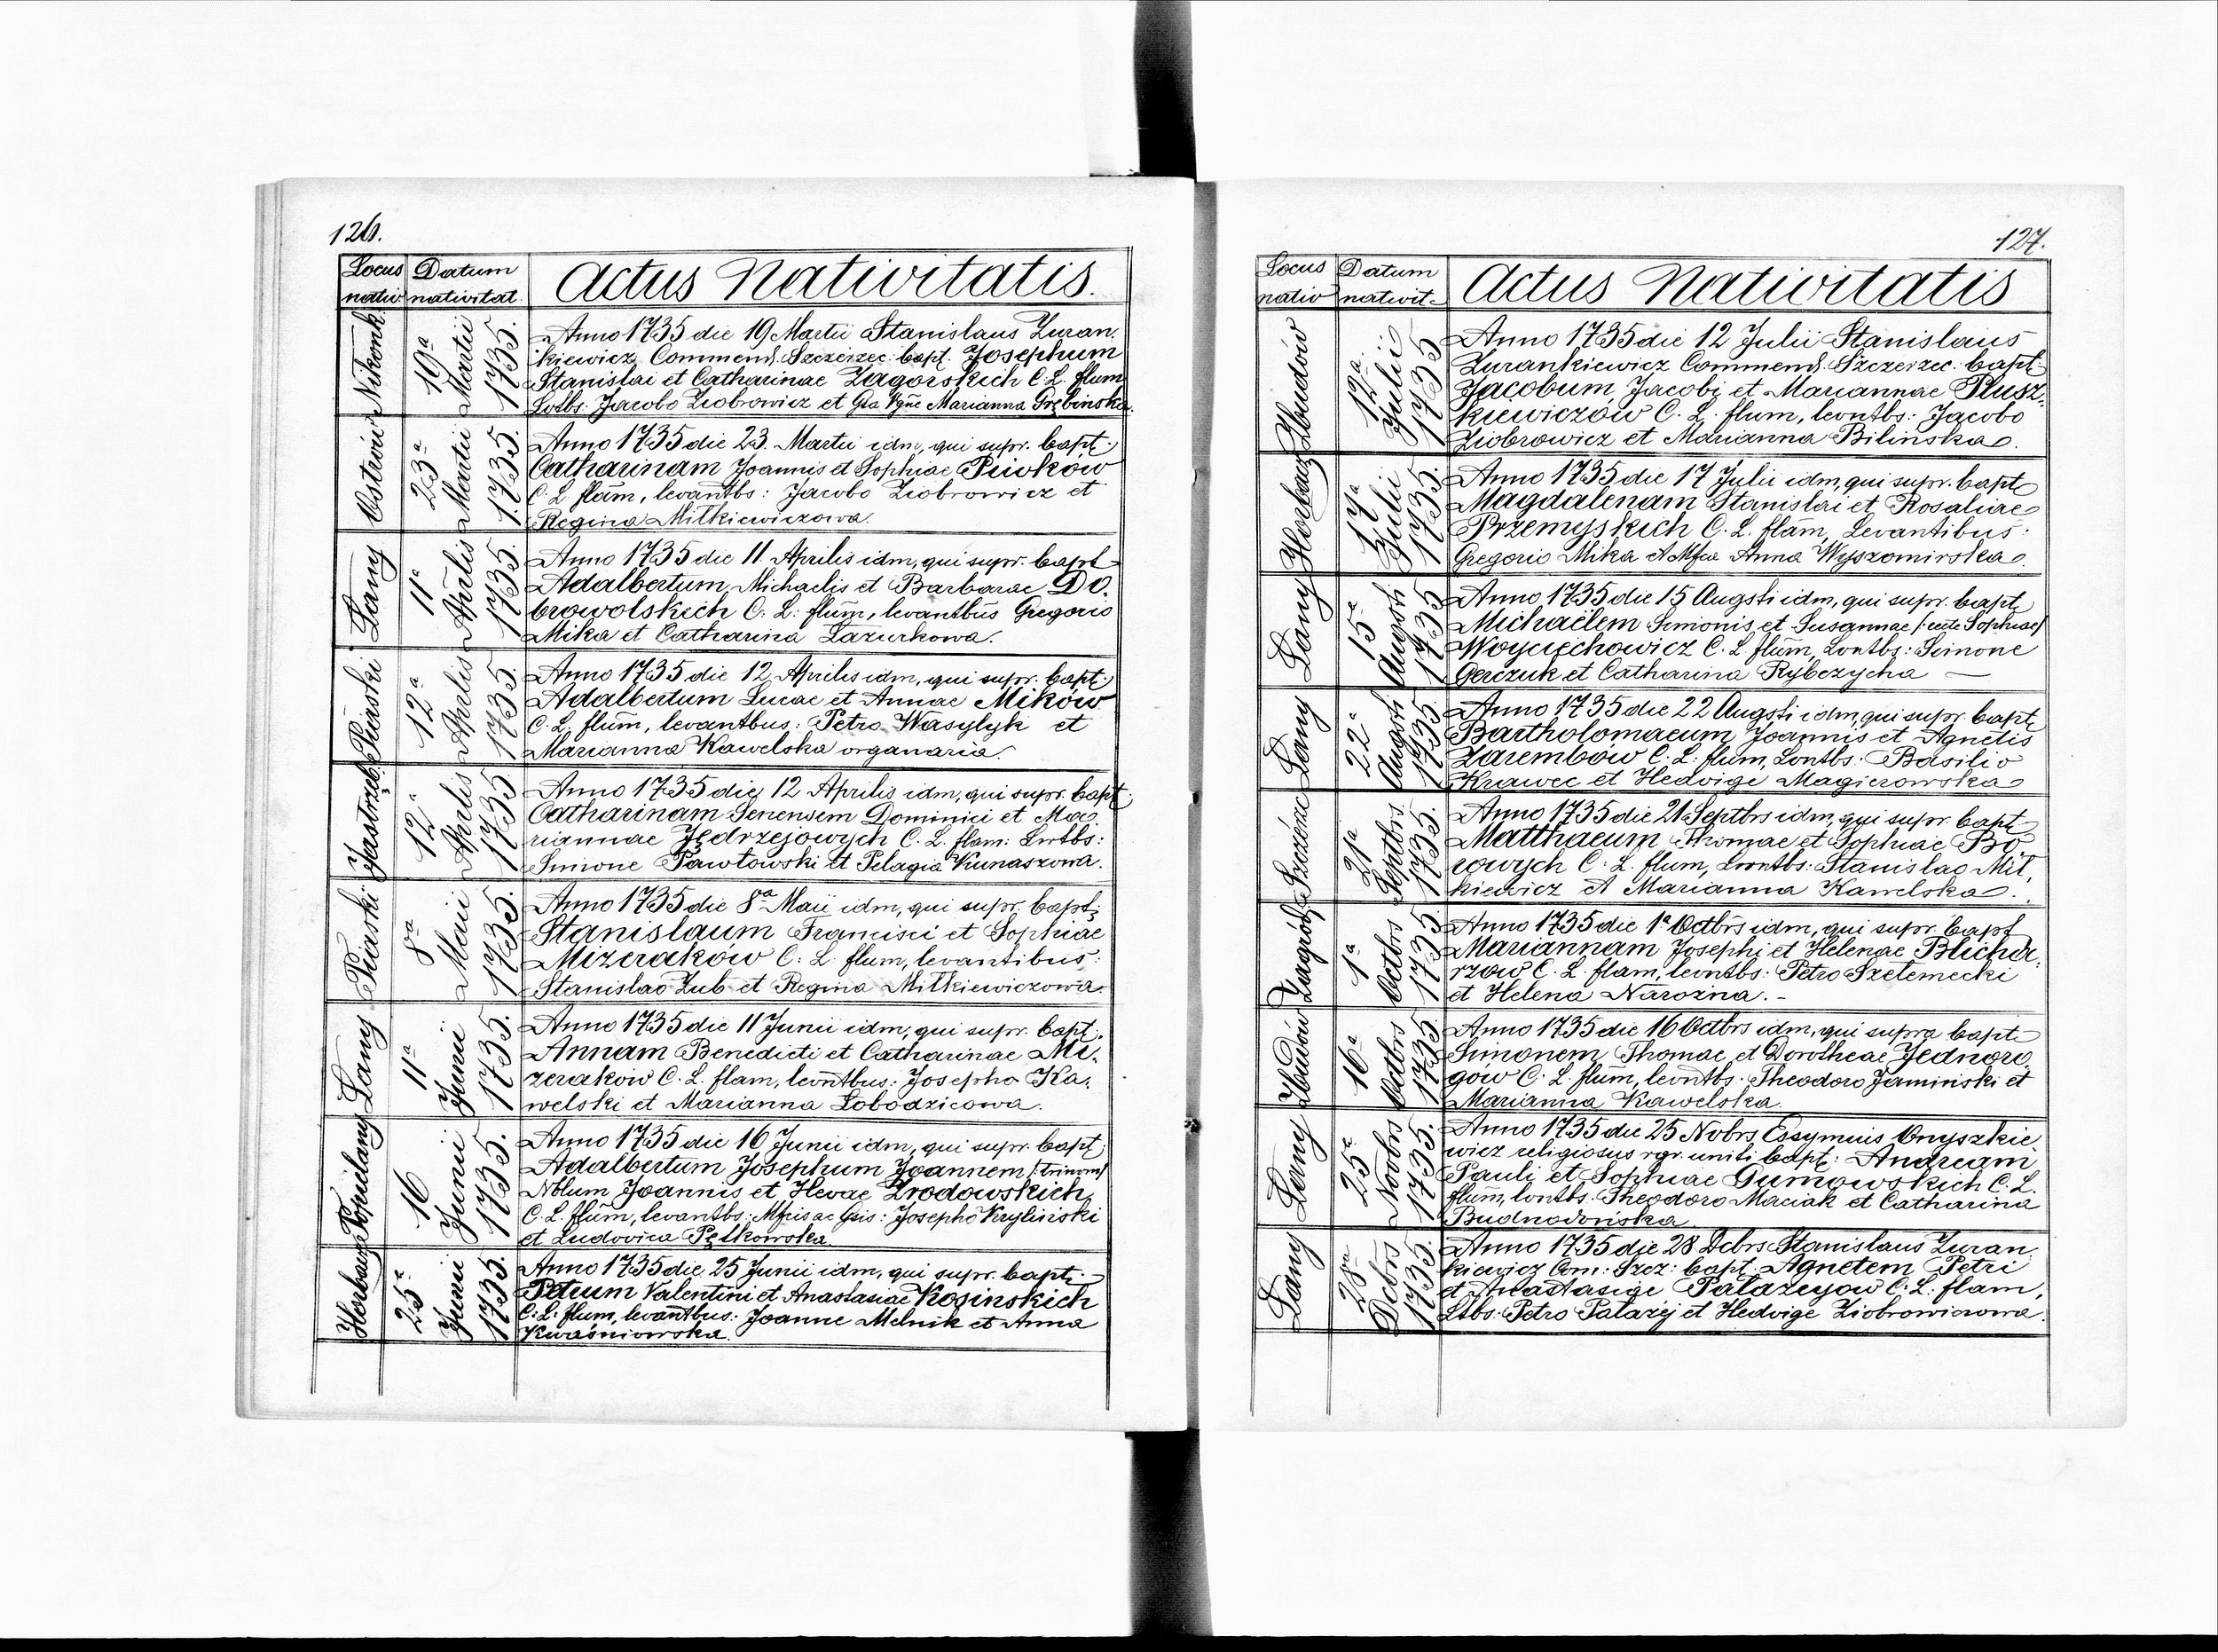 126.
Locus nativ
Datum nativitat.
Actus Nativitatis.
Nikonk.
19ª Martii 1735.
Anno 1735 die 19 Martii Stanislaus Zuran.
kiewicz Commend. Szczerzec: bapt. Josephum
Stanislai et Catharinae Zagorskich C. L. flum
Lvtbs: Jacobo Ziobrowicz et Gsa Vgne Marianna Grębinska.
Ostrów
23ª Martii 1735.
Anno 1735 die 23. Martii idm, qui supr. bapt:
Catharinam Joannis et Sophiae Piwkow
C. L flam, levantbs: Jacobo Ziobrowicz et
Regina Mitkiewiczowa.
Lany
11ª Aprilis 1735.
Anno 1735 die 11. Aprilis idm, qui supr. bapt
Adalbertum, Michaelis et Barbarae Do.
browolskich C. L. flum, levantbus Gregorio
Mika et Catharina Lazurkowa.
Piaski
12ª Aprilis 1735.
Anno 1735 die 12 Aprilis idm, qui supr. bapt:
Adalbertum Lucae et Annae Mików
C. L. flum, levantbus: Petro Wasylyk et
Marianna Kawelska organaria.
Jastrzęb:
12ª Aprilis 1735
Anno 1735 die 12 Aprilis idm, qui supr. bapt:
Catharinam Senensem Dominici et Ma.
riannae Jędrzejowych C. L. flam: Lvtbs:
Simone Pawłowski et Pelagia Kunaszowa.
Piaski
8ª Maii 1735.
Anno 1735 die 8ª Maii idm, qui supr. bapt:
Stanislaum Francisci et Sophiae
Mizeraków C. L. flum, levantibus:
Stanislao Zub et Regina Mitkiewiczowa.
Lany
11ª Junii 1735.
Anno 1735 die 11 Junii idm, qui supr. bapt:
Annam Benedicti et Catharinae Mi.
zerakow C. L. flam, levntbus: Josepho Ka.
welski et Marianna Lobodzicowa.
Popielany
16 Junii 1735.
Anno 1735 die 16 Junii idm, qui supr. bapt:
Adalbertum Josephum Joannem /:trinom/
Nblum Joannis et Hevae Zrodowskich,
C. L. flum, levantbs: Mfcis ac Gsis: Josepho Kryliński
et Ludovica Pętkowska.
Horbacze
25ª Junii 1735.
Anno 1735 die 25 Junii idm, qui supr. bapt:
Petrum Valentini et Anastasiae Kosinskich
C. L. flum, levantbus: Joanne Melnik et Anna
Kwaśniowska.
127.
Locus nativ
Datum nativit.
Actus Nativitatis
Humów
12ª Julii 1735
Anno 1735 die 12 Julii Stanislaus
Zurankiewicz Commend. Szczerzec: bapt:
Jacobum, Jacobi et Mariannae Plusz.
kiewiczów C. L. flum, levntbs: Jacobo
Ziobrowicz et Marianna Bilinska.
Horbacze
17ª Julii 1735.
Anno 1735 die 17 Julii idm, qui supr. bapt
Magdalenam Stanislai et Rosaliae
Przemyskich C. L. flam, Levantibus:
Gregorio Mika et Mfca Anna Wyszomirska.
Lany
15ª Augsti 1735
Anno 1735 die 15 Augsti idm, qui supr. bapt
Michaëlem Simonis et Susannae /:recte Sophiae/
Woyciechowicz C. L flum, Lvntbs: Simone
Gerczuk et Catharina Rybczycha —
Lany
22ª Augsti 1735
Anno 1735 die 22 Augsti idm, qui supr. bapt
Bartholomaeum Joannis et Agnetis
Zarembów C. L. flum, Lvntbs: Basilio
Krawec et Hedvige Magierowska
Szczérzec
21ª Septbrs 1735.
Anno 1735 die 21 Septbrs idm, qui supr. bapt
Matthaeum Thomae et Sophiae Bo
rowych C. L. flum, Lvntbs: Stanislao Mit.
kiewicz et Marianna Kawelska.
Zagródk
1ª Octbrs 1735
Anno 1735 die 1ª Octbrs idm, qui supr. bapt
Mariannam Josephi et Helenae Blicha.
rzow C. L. flam, levntbs: Petro Szełemecki
et Helena Narożna. -
Humów
16ª Octbrs 1735
Anno 1735 die 16 Octbrs idm, qui supra bapt
Simonem Thomae et Dorotheae Jednoro.
gów C. L. flum, levntbs: Theodoro Jaminski et
Marianna Kawelska.
Lany
25ª Novbrs 1735.
Anno 1735 die 25 Nvbrs Onyszkie
wicz religiosus rgr. uniti bapt: Andream
Pauli et Sophiae Gumowskich C. L.
flum, lvntbs. Theodoro Maciak et Catharina
Lany
28ª Dcbrs 1735.
Anno 1735 die 28 Dcbrs Stanislaus Zuran.
kiewicz Com: Szcz: bapt. Agnetem Petri
et Anastasiae Palazejow C. L. flam,
Ltbs: Petro Palazej et Hedvige Ziobrowiczowa.